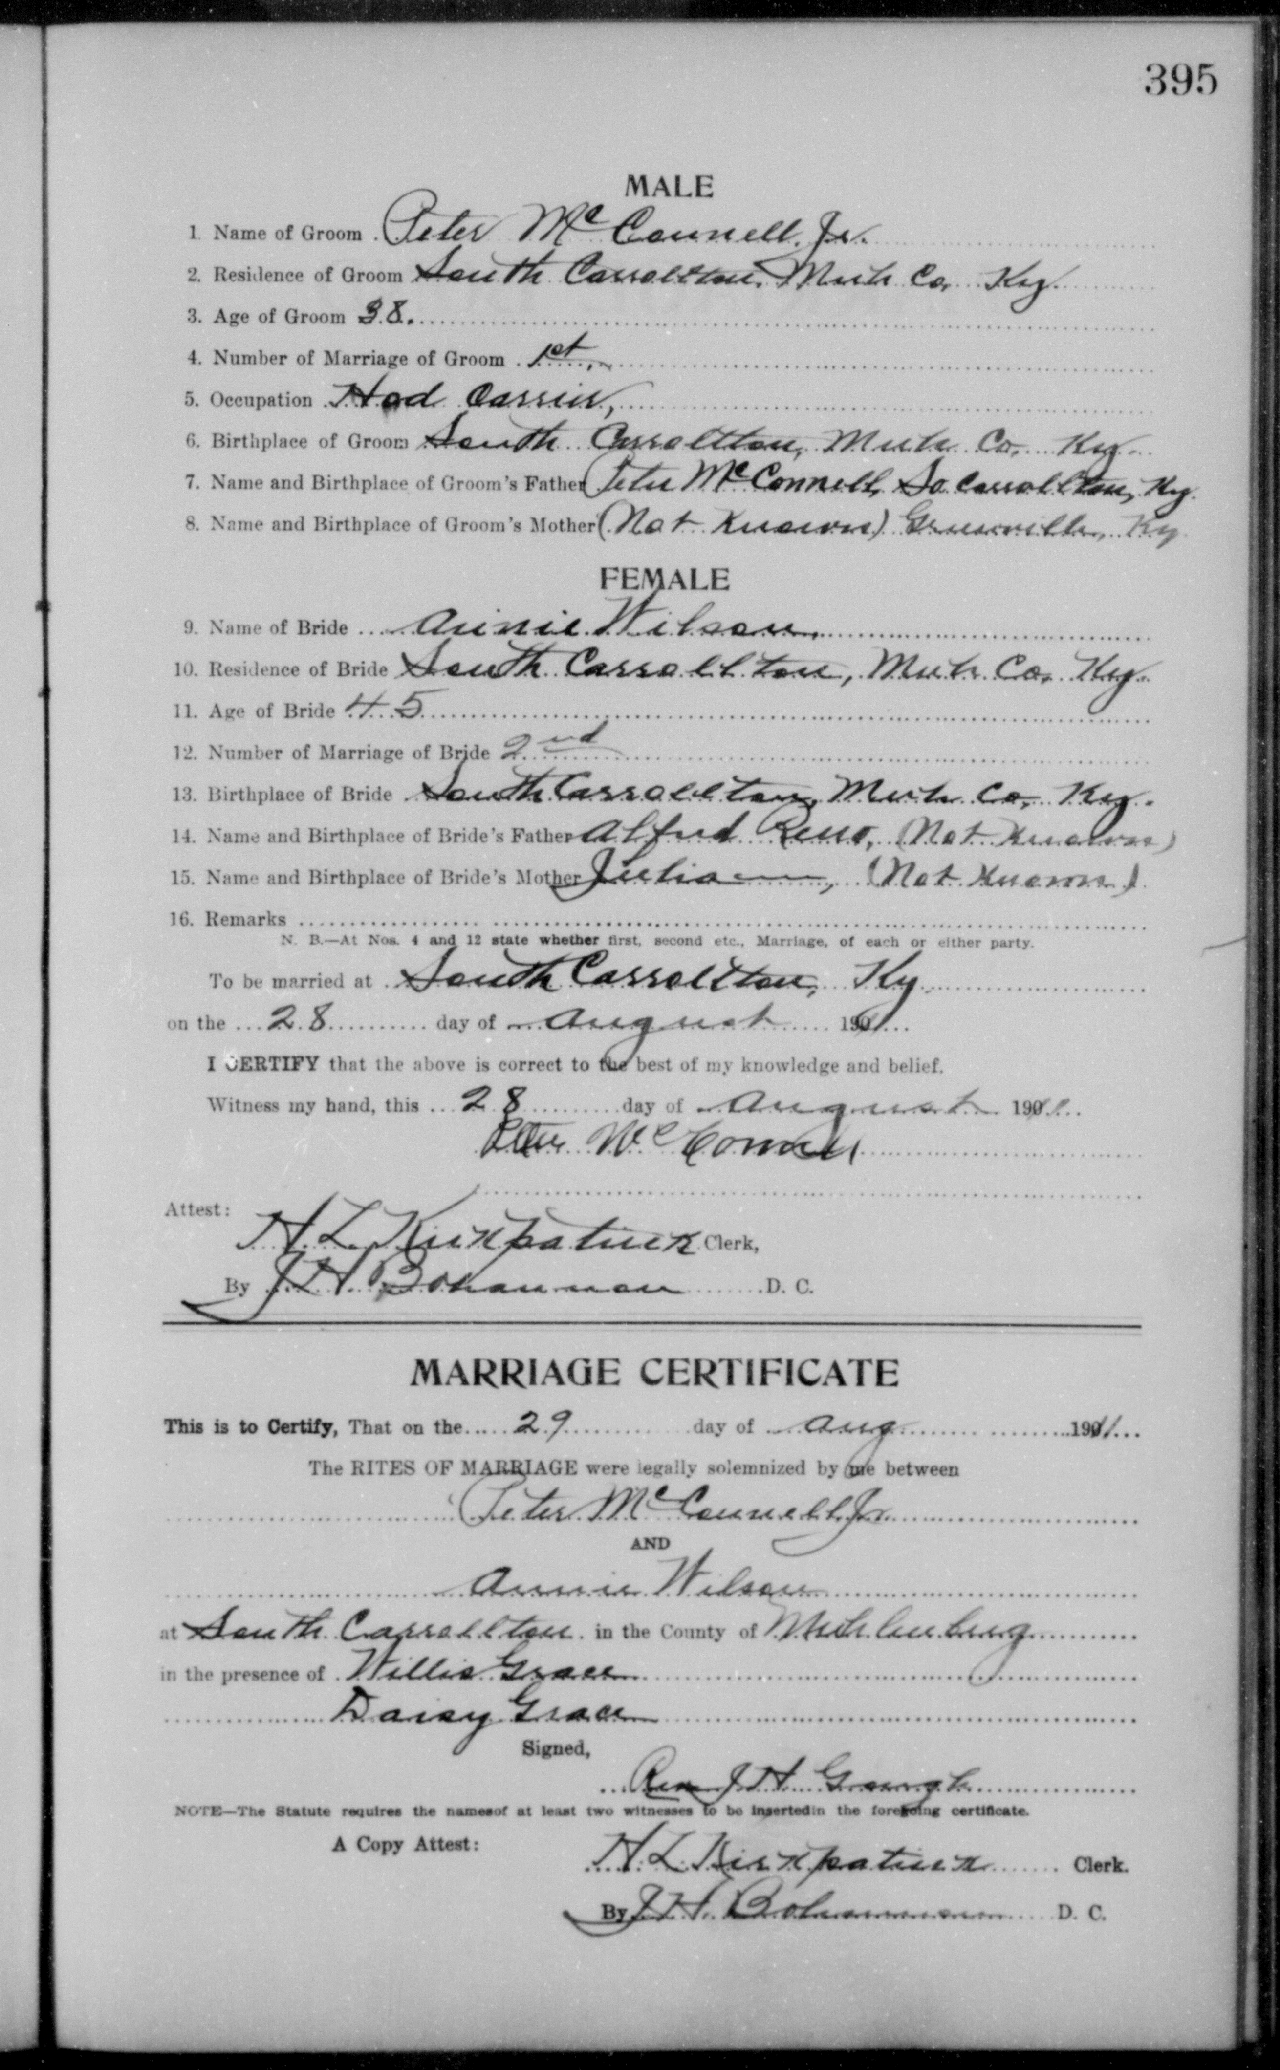 395
MALE
1. Name of Groom Peter McConnell Jr.
2. Residence of Groom South Carrollton, Muh Co, Ky.
3. Age of Groom 38.
4. Number of Marriage of Groom 1st,
5. Occupation Hod Carrier,
6. Birthplace of Groom South Carrollton, Muh Co. Ky.
7. Name and Birthplace of Groom's Father Peter McConnell, So Carrollton, Ky.
8. Name and Birthplace of Groom's Mother (Not Known) Greenville, Ky
FEMALE
9. Name of Bride Annie Wilson,
10. Residence of Bride South Carrollton, Muh Co, Ky.
11. Age of Bride 45
12. Number of Marriage of Bride 2nd
13. Birthplace of Bride South Carrollton, Muh Co, Ky.
14. Name and Birthplace of Bride's Father Alfred Reno, (Not Known)
15. Name and Birthplace of Bride's Mother Julia —, (Not Known)
16. Remarks
N. B.—At Nos. 4 and 12 state whether first, second etc., Marriage, of each or either party.
To be married at South Carrollton, Ky
on the 28 day of August 1911
I CERTIFY that the above is correct to the best of my knowledge and belief.
Witness my hand, this 28 day of August 1911
Peter McConnell
Attest:
H. L. Kirkpatrick Clerk,
By J H Bohannon D. C.
MARRIAGE CERTIFICATE
This is to Certify, That on the 29 day of Aug 1911
The RITES OF MARRIAGE were legally solemnized by me between
Peter McConnell Jr.
AND
Annie Wilson
at South Carrollton in the County of Muhlenberg
in the presence of Willis Grace
Daisy Grace
Signed,
Rev J H Gough
NOTE—The Statute requires the namesof at least two witnesses to be insertedin the foregoing certificate.
A Copy Attest:
H L Kirkpatrick Clerk.
By J H Bohannon D. C.